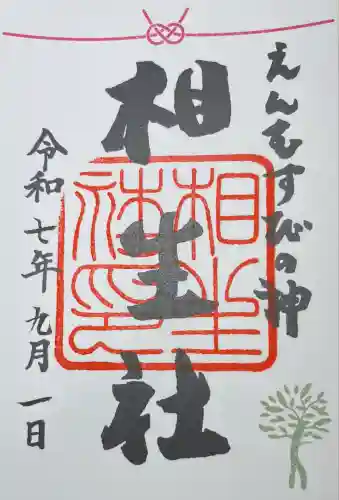 えんむすびの神
相生社
相生社印
令和七年九月一日